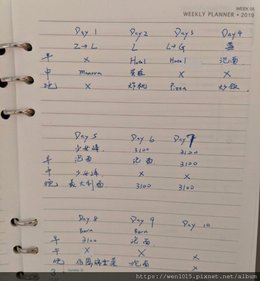 WEEK 05
WEEKLY PLANNER • 2019
Day 1 Day 2 Day 3 Day 4
Z → L L L → G
早 X Hotel Hotel 泡面
中 X X
晚 X 炸鸡 Pizza 炒飯
Day 5 Day 6 Day 7
少女峰 3100 3100
早 泡面 泡面 3100
中 少女峰 X X
晚 義大利面 3100 3100
Day 8 Day 9 Day 10
Bern Bern
早 3100 泡面
午 X X X
晚 泡面
https://wen1015.pixnet.net/album